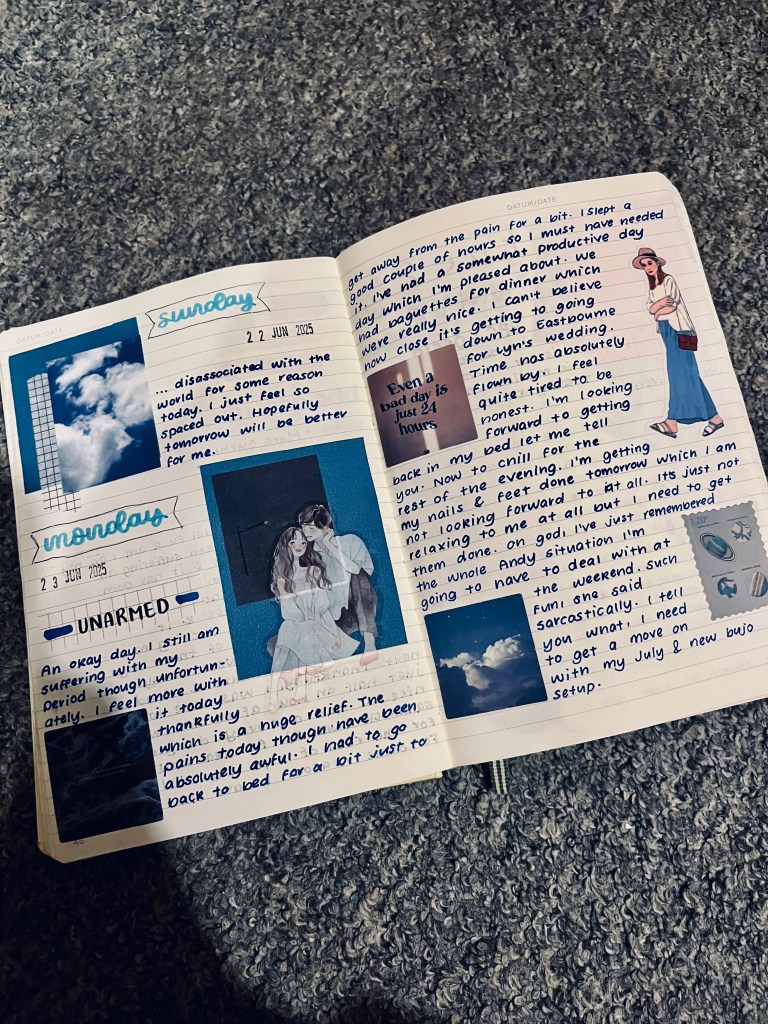 DATUM/DATE
sunday
22 JUN 2025
... disassociated with the
world for some reason
today. I just feel so
spaced out. Hopefully
tomorrow will be better
for me.
monday
23 JUN 2025
UNARMED
An okay day. I still am
suffering with my
period though unfortun-
ately. I feel more with
it today
thankfully
which is a huge relief. The
pains today though have been
absolutely awful. I had to go
back to bed for a bit just to
46
DATUM/DATE
get away from the pain for a bit. I slept a
good couple of hours so I must have needed
it. I've had a somewhat productive day
day which I'm pleased about. We
had baguettes for dinner which
were really nice. I can't believe
now close it's getting to going
down to Eastbourne
for Lyn's wedding.
Time has absolutely
flown by. I feel
quite tired to be
honest. I'm looking
forward to getting
Even a
bad day is
just 24
hours
back in my bed let me tell
you. Now to chill for the
rest of the evening. I'm getting
my nails & feet done tomorrow which I am
not looking forward to at all. Its just not
relaxing to me at all but I need to get
them done. Oh god, I've just remembered
the whole Andy situation I'm
going to have to deal with at
the weekend. Such
fun! she said
sarcastically. I tell
you what, I need
to get a move on
with my July & new bujo
setup.